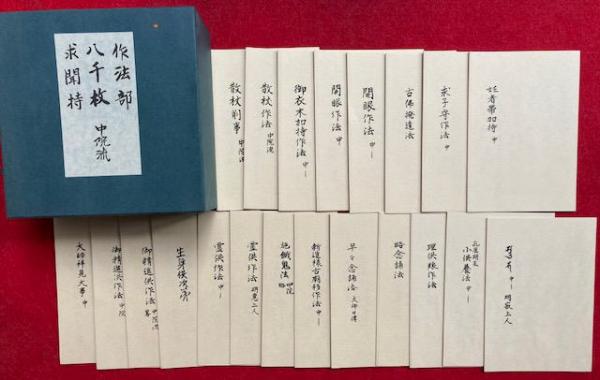 作法部
八千枚
求聞持
中院流
妊者帯加持 中
求子守作法 中
古佛撥遣法
開眼作法 中一
開眼作法 中
御衣木加持作法 中一
散杖作法 中院流
散杖削事 中院流
中一
上人
小供養法 中一
理供養作法
略念誦法
念誦法 大師口傳
作法 中一
施餓鬼法 中院
霊供作法 明恵上人
霊供作法 中一
生身供
御精進供作法 中院流
御精進供作法 中院
大師拝見大事 中